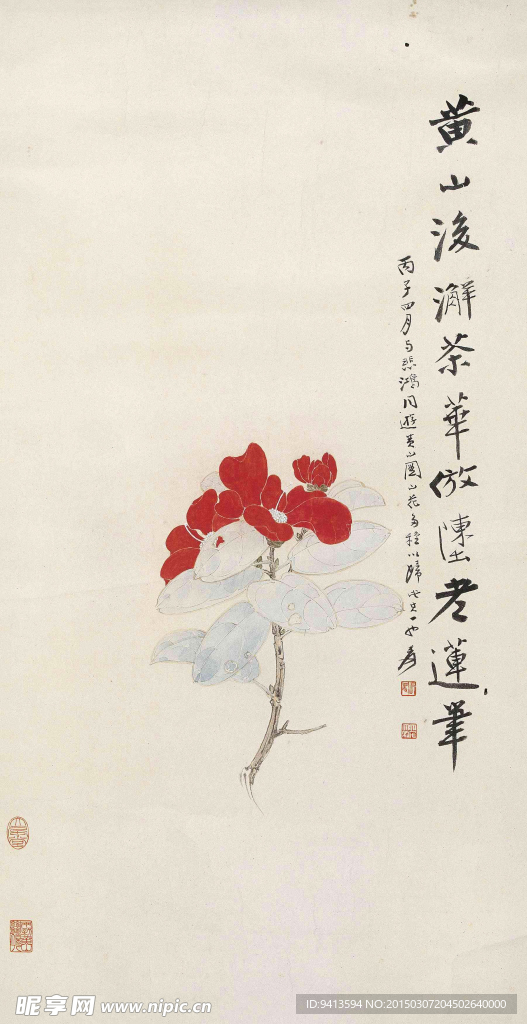 黄山後澥茶華倣陳老蓮筆
丙子四月与悲鴻同遊黄山圖山花多種以歸此其一也 爰
昵享网 www.nipic.cn
ID:9413594 NO:20150307204502640000